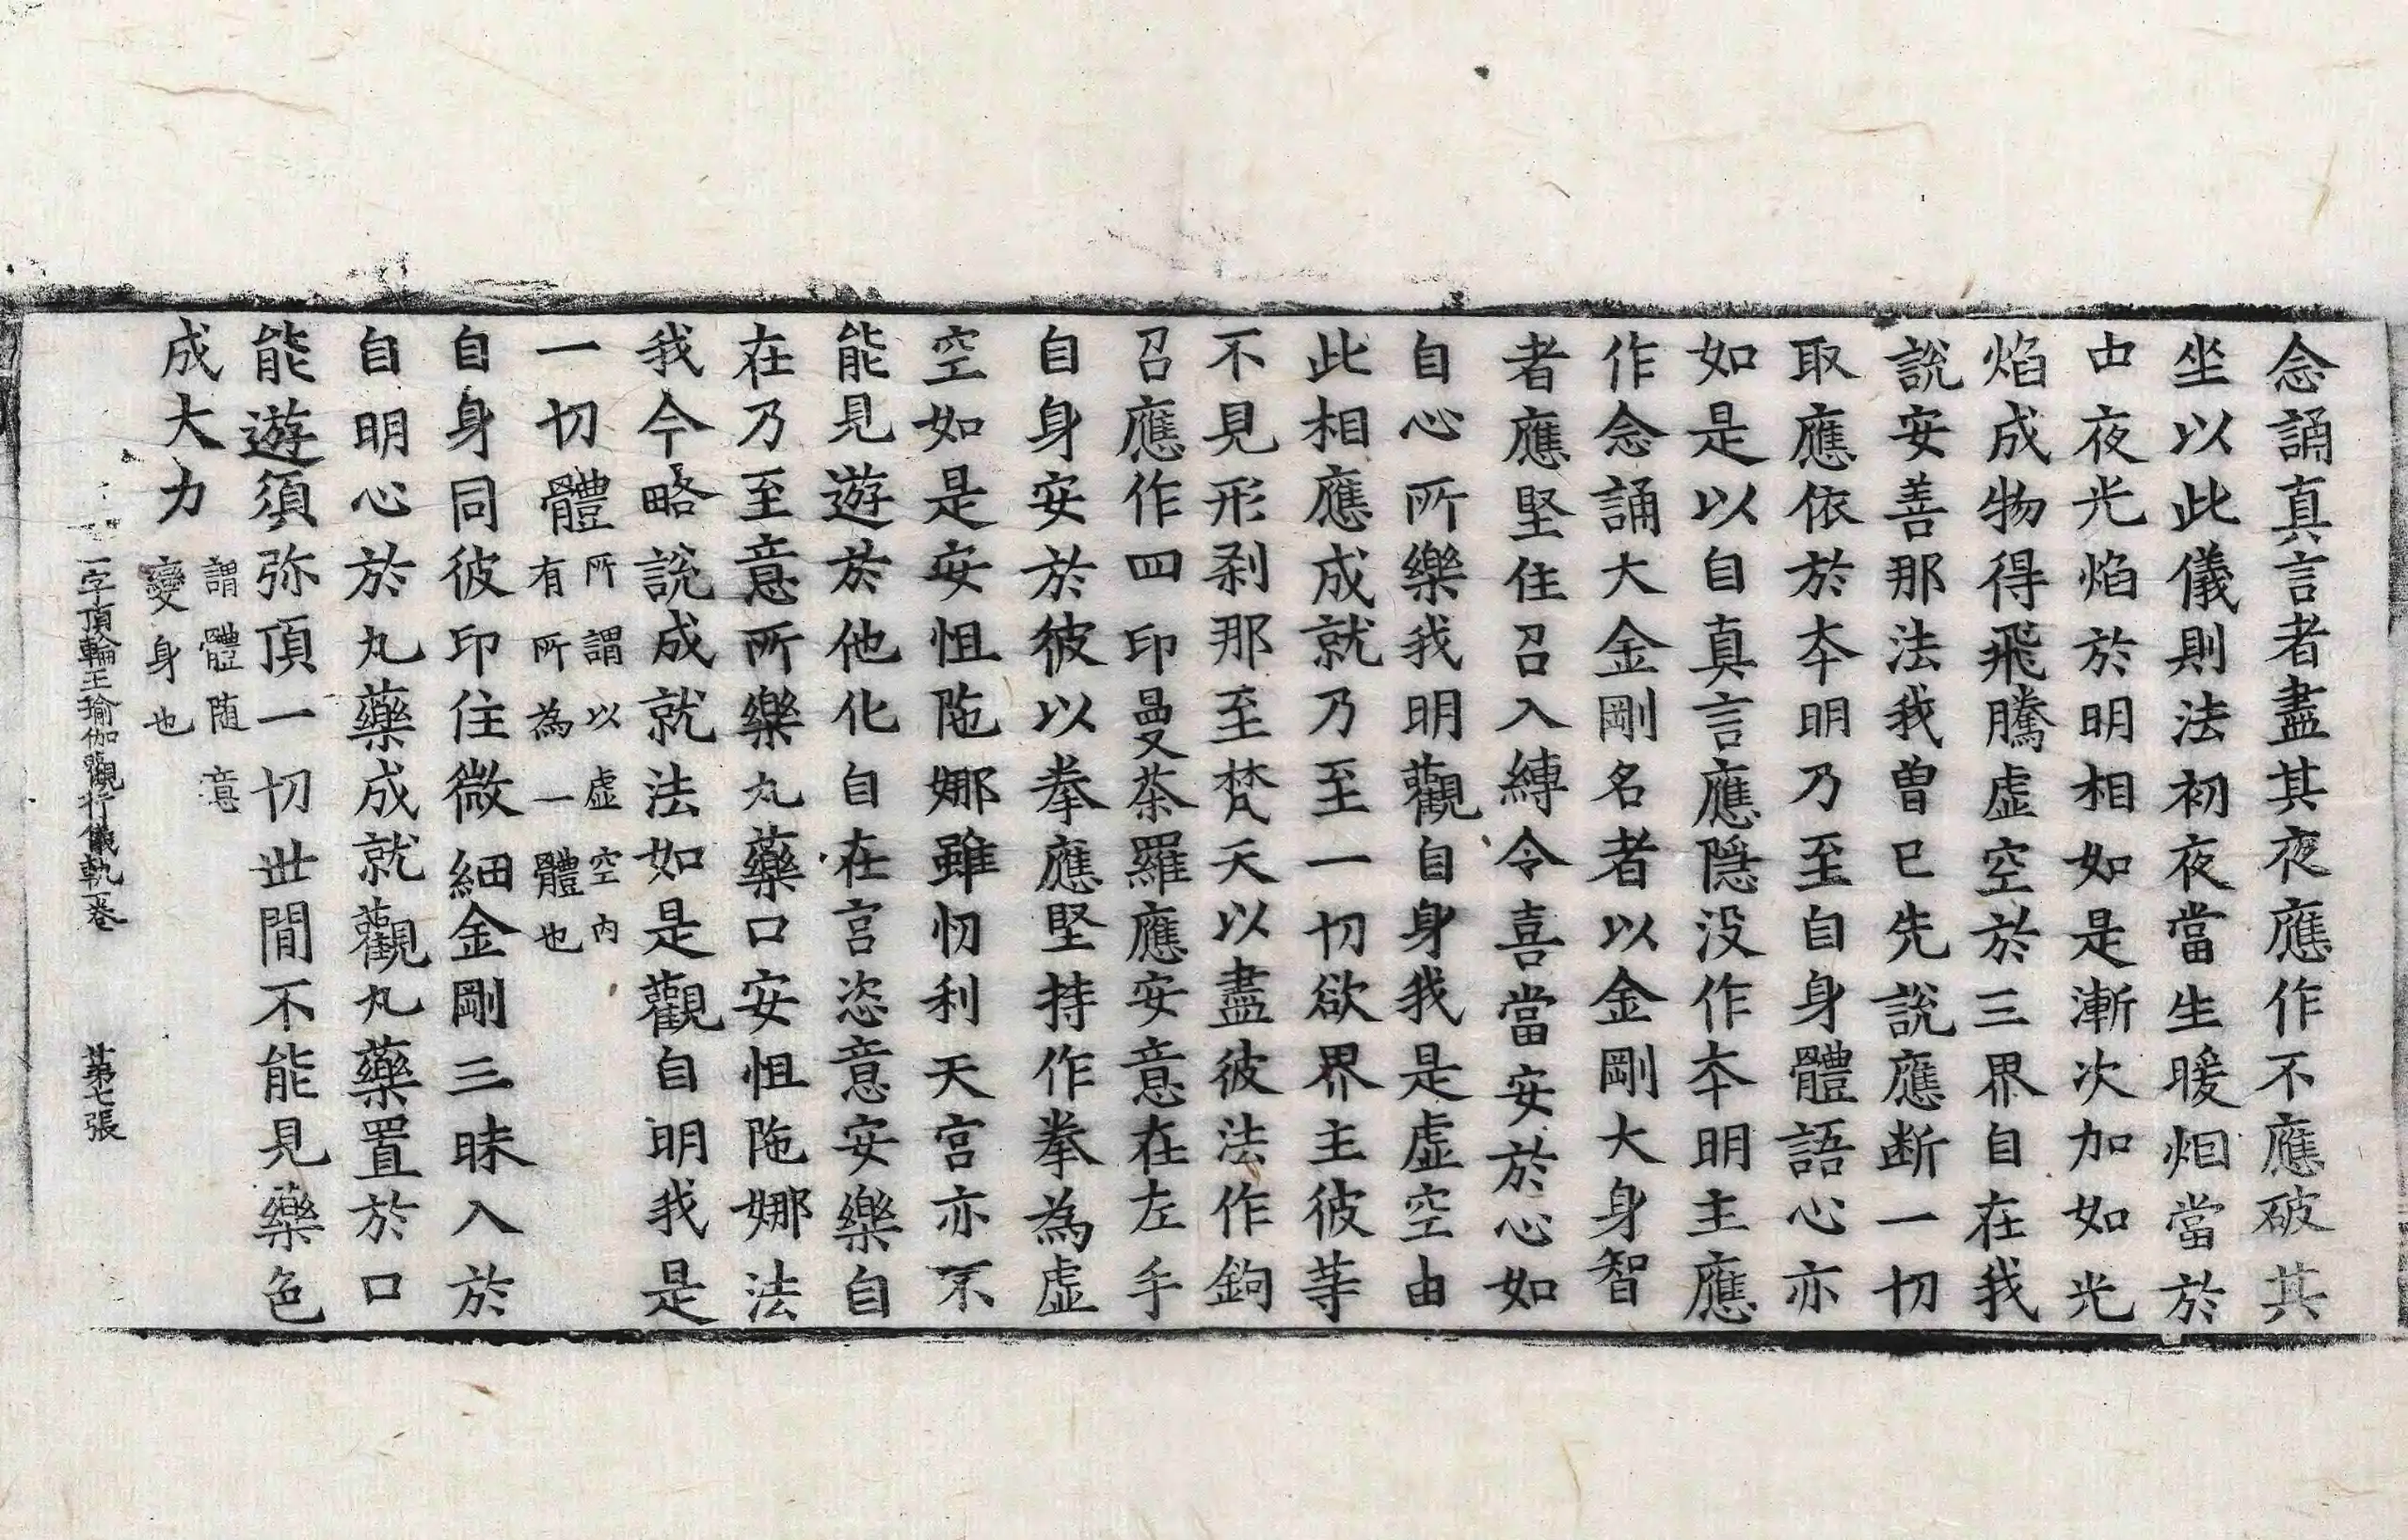 念誦真言者盡其夜應作不應破其
坐以此儀則法初夜當生暖烟當於
中夜光焰於明相如是漸次加如光
焰成物得飛騰虛空於三界自在我
說安善那法我曾已先說應断一切
取應依於本明乃至自身體語心亦
如是以自真言應隱没作本明主應
作念誦大金剛名者以金剛大身智
者應堅住召入縛令喜當安於心如
自心所樂我明觀自身我是虛空由
此相應成就乃至一切欲界主彼等
不見形剎那至梵天以盡彼法作鉤
召應作四印曼荼羅應安意在左手
自身安於彼以拳應堅持作拳為虛
空如是安怛陁娜雖忉利天宮亦不
能見遊於他化自在宮恣意安樂自
在乃至意所樂丸藥口安怛陁娜法
我今略說成就法如是觀自明我是
一切體所謂以虛空內有所為一體也
自身同彼印住微細金剛三昧入於
自明心於丸藥成就觀丸藥置於口
能遊須弥頂一切世間不能見藥色
成大力謂體随意變身也
一字頂輪王瑜伽觀行儀軌一卷 第七張